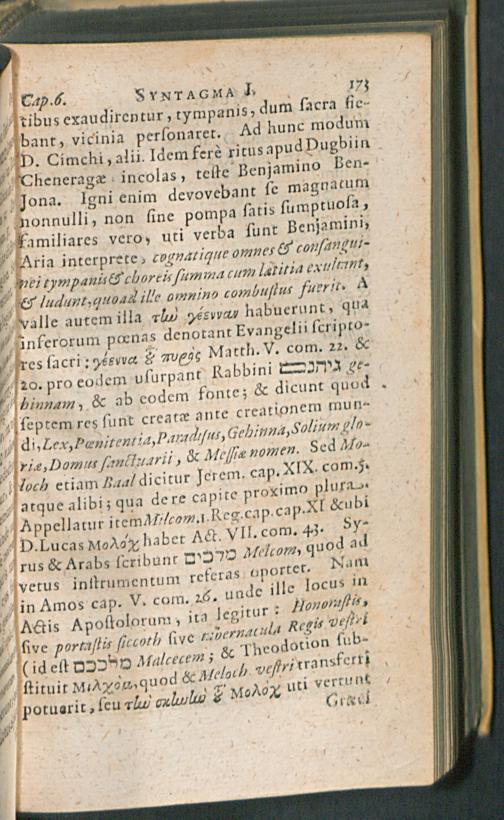 Cap.6. SYNTAGMA I. 173
tibus exaudirentur, tympanis, dum sacra fie-
bant, vicinia personaret. Ad hunc modum
D. Cimchi, alii. Idem ferè ritus apud Dugbiin
Cheneragæ incolas, teste Benjamino Ben-
Jona. Igni enim devovebant se magnatum
nonnulli, non sine pompa satis sumptuosa,
familiares vero, uti verba sunt Benjamini,
Aria interprete, cognatique omnes & consangui-
nei tympanis & choreis summa cum lætitia exultant,
& ludunt, quoad ille omnino combustus fuerit. A
valle autem illa τὼ γέενναν habuerunt, qua
inferorum pœnas denotant Evangelii scripto-
res sacri: γέεννα ȣ̃ πυρὸς Matth. V. com. 22. &
20. pro eodem usurpant Rabbini ge-
hinnam, & ab eodem fonte; & dicunt quod
septem res sunt creatæ ante creationem mun-
di, Lex, Pœnitentia, Paradisus, Gehinna, Solium glo-
riæ, Domus sanctuarii, & Messiæ nomen. Sed Mo-
loch etiam Baal dicitur Jerem. cap. XIX. com. 5.
atque alibi; qua de re capite proximo plura.
Appellatur item Milcom. 1. Reg. cap. cap. XI & ubi
D. Lucas Μολόχ habet Act. VII. com. 43. Sy-
rus & Arabs scribunt מלכום Melcom, quod ad
vetus instrumentum referas oportet. Nam
in Amos cap. V. com. 26. unde ille locus in
Actis Apostolorum, ita legitur: Honorastis,
sive portastis siccoth sive tabernacula Regis vestri
(id est מלככם Malcecem; & Theodotion sub-
stituit Μιλχὸμ, quod & Meloch vestri transferri
potuerit, seu τὼ σκιωὼ ȣ̃ Μολόχ uti vertunt
Græci